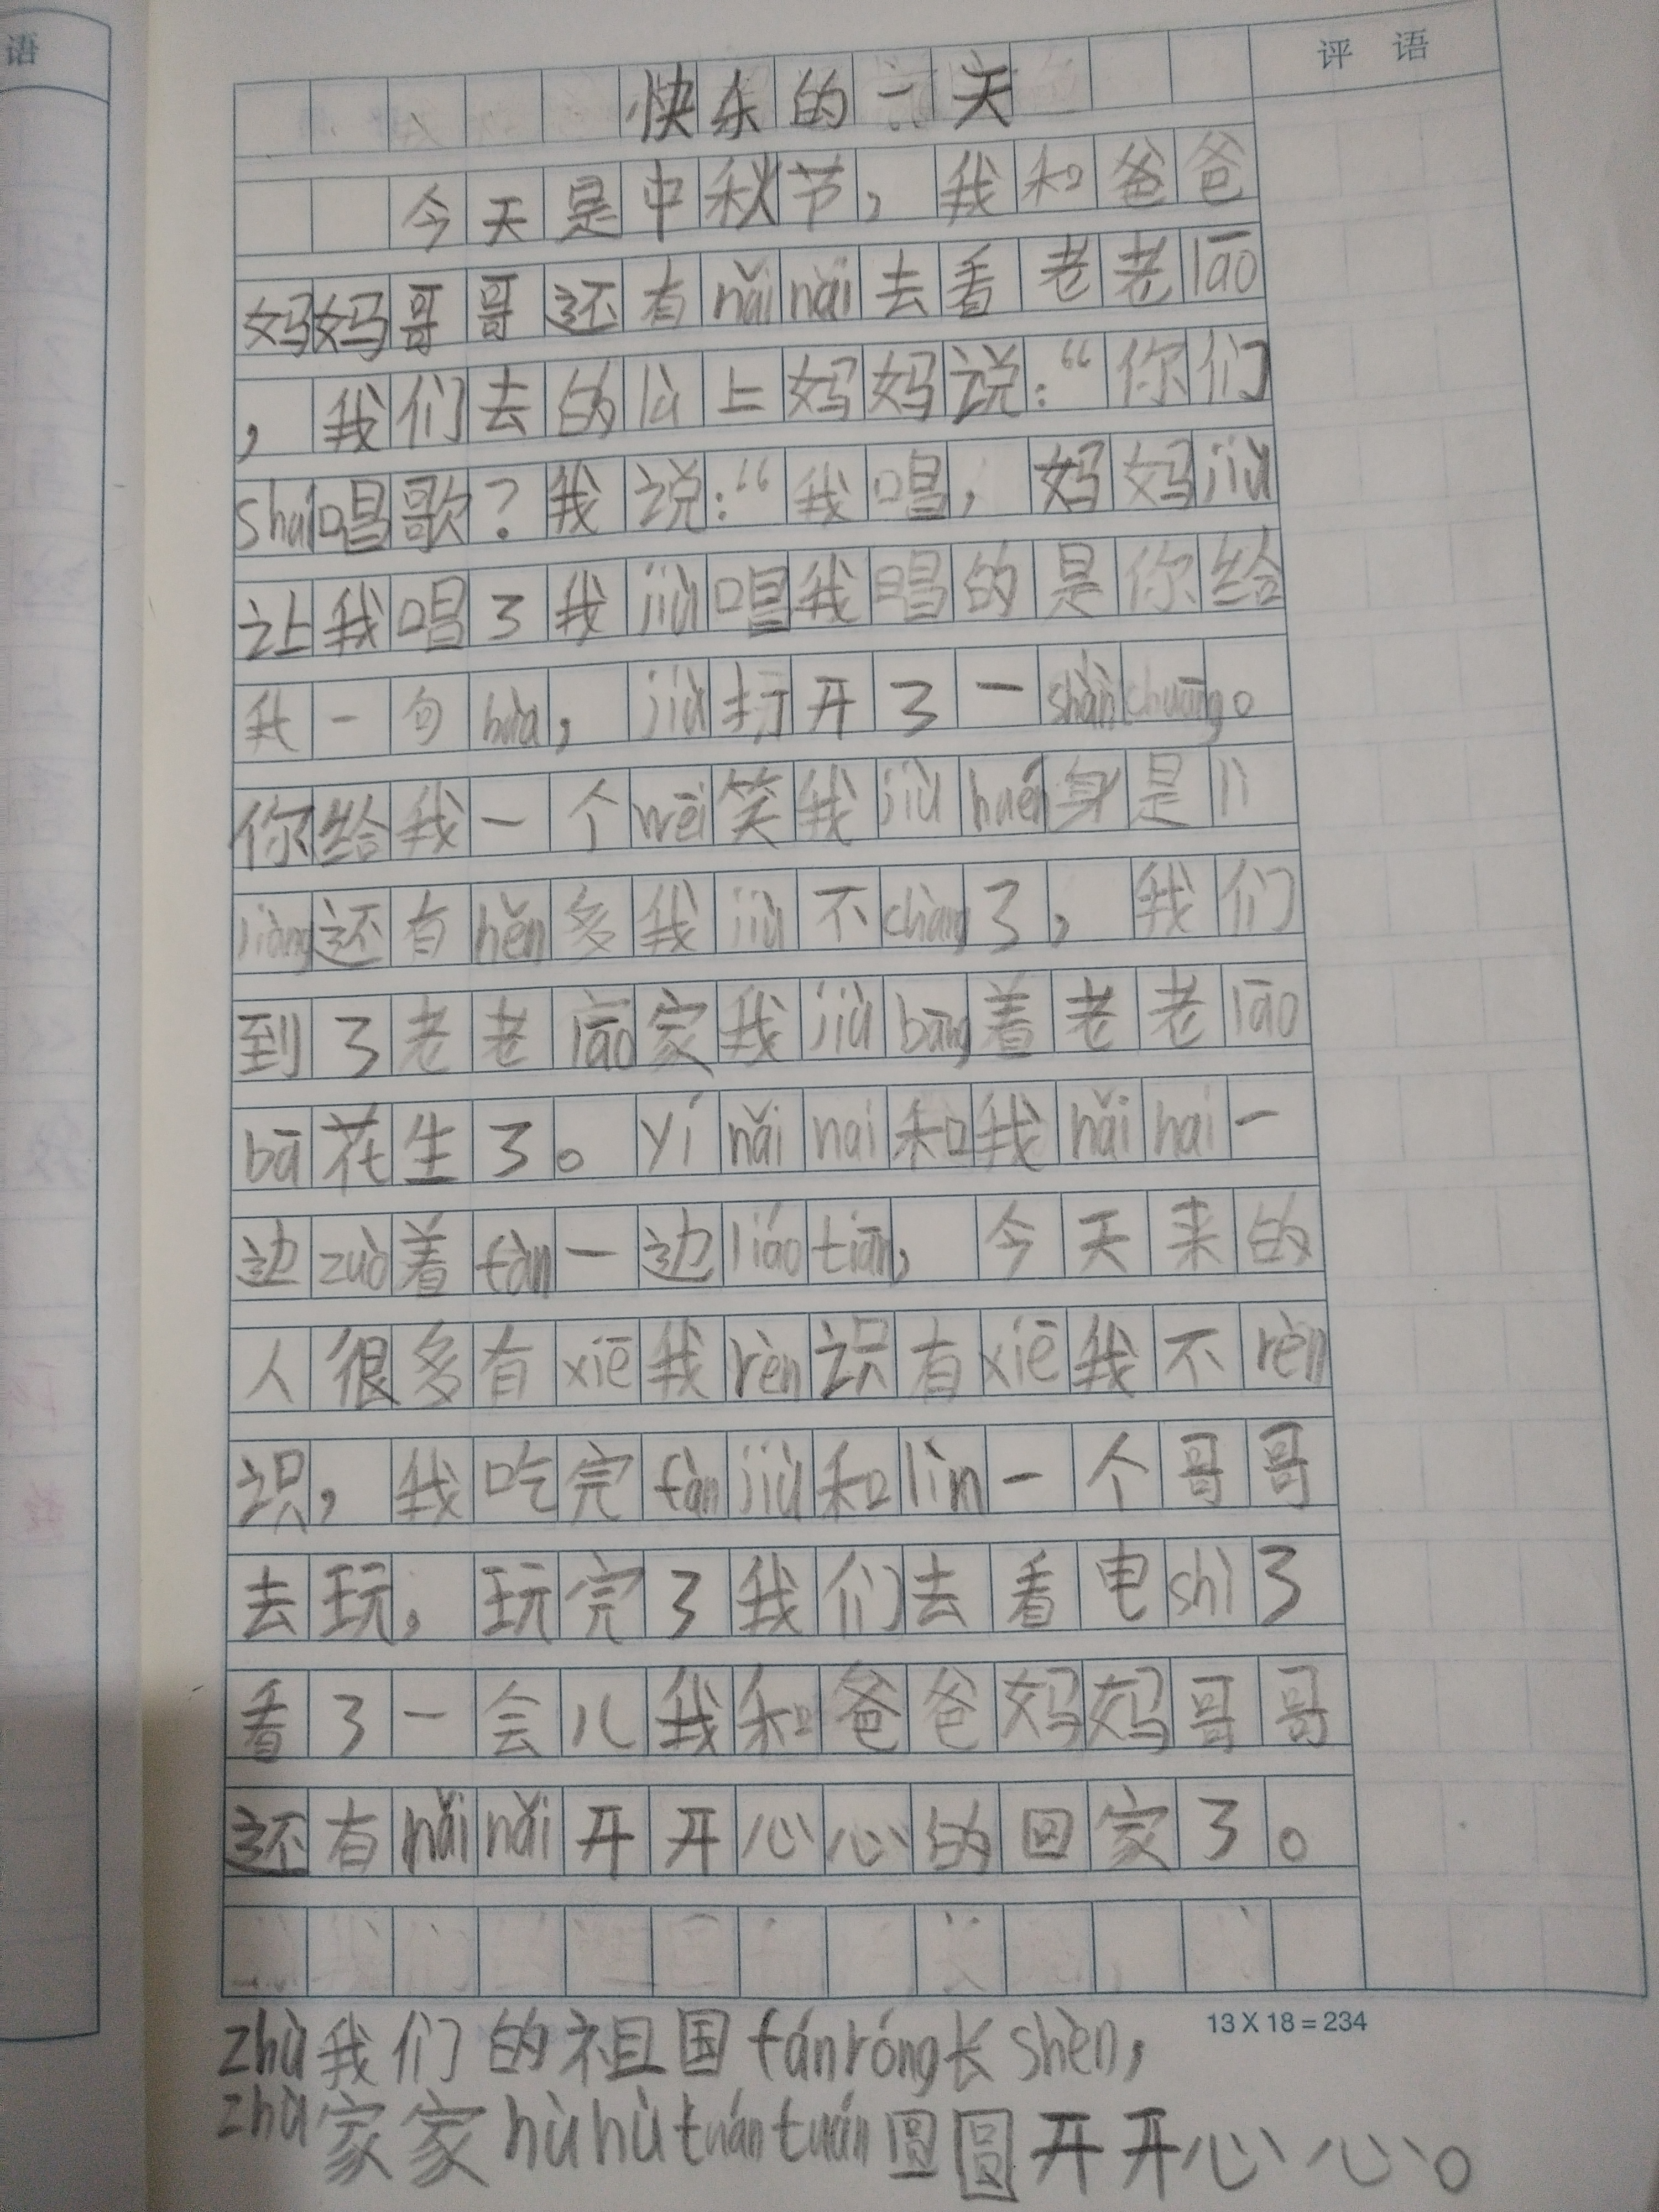 语
评 语
快乐的一天
今天是中秋节，我和爸爸
妈妈哥哥还有nǎinǎi去看老老lāo
，我们去的lù上妈妈说：“你们
shuí唱歌？我说：“我唱，妈妈jiù
让我唱了我jiù唱我唱的是你给
我一句huà，jiù打开了一shànchuāng。
你给我一个wēi笑我jiù huén身是lì
liàng还有hěn多我jiù不chàng了，我们
到了老老lāo家我jiù bāng着老老lāo
bā花生了。yí nǎi nai和我nǎi nai一
边zuò着fàn一边liáo tiān，今天来的
人很多有xiē我rèn识有xiē我不rèn
识，我吃完fàn jiù和lìn一个哥哥
去玩，玩完了我们去看电shì了
看了一会儿我和爸爸妈妈哥哥
还有nǎi nǎi开开心心的回家了。
13 X 18 = 234
zhù我们的祖国fánróng长shèn，
zhù家家hùhùtuántuán圆圆开开心心。